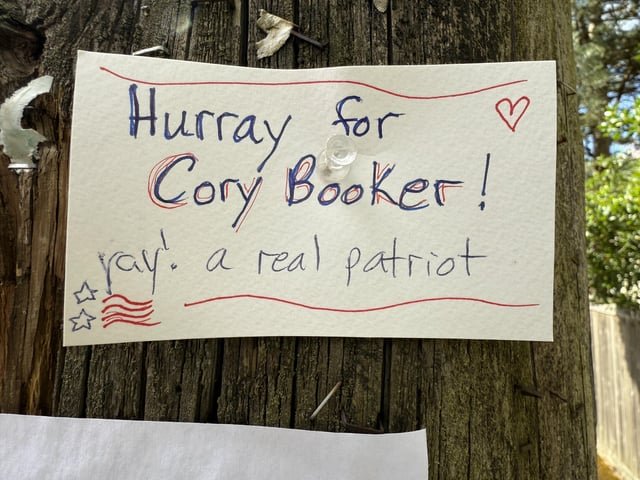 Hurray for
Cory Booker!
yay! a real patriot